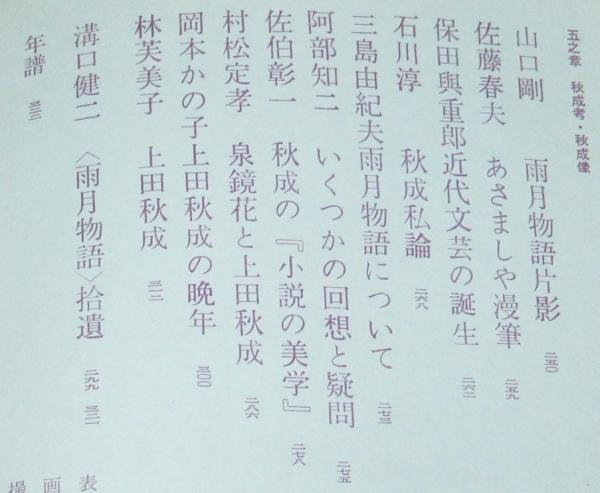 五之章　秋成考・秋成像
山口剛　雨月物語片影　二五〇
佐藤春夫　あさましや漫筆　二五九
保田與重郎近代文芸の誕生　二六二
石川淳　秋成私論　二六八
三島由紀夫雨月物語について　二七三
阿部知二　いくつかの回想と疑問　二七五
佐伯彰一　秋成の『小説の美学』　二七八
村松定孝　泉鏡花と上田秋成　二八六
岡本かの子上田秋成の晩年　三〇〇
林芙美子　上田秋成　三一二
溝口健二　〈雨月物語〉拾遺　二九九　三二一
年譜
表
画
撮